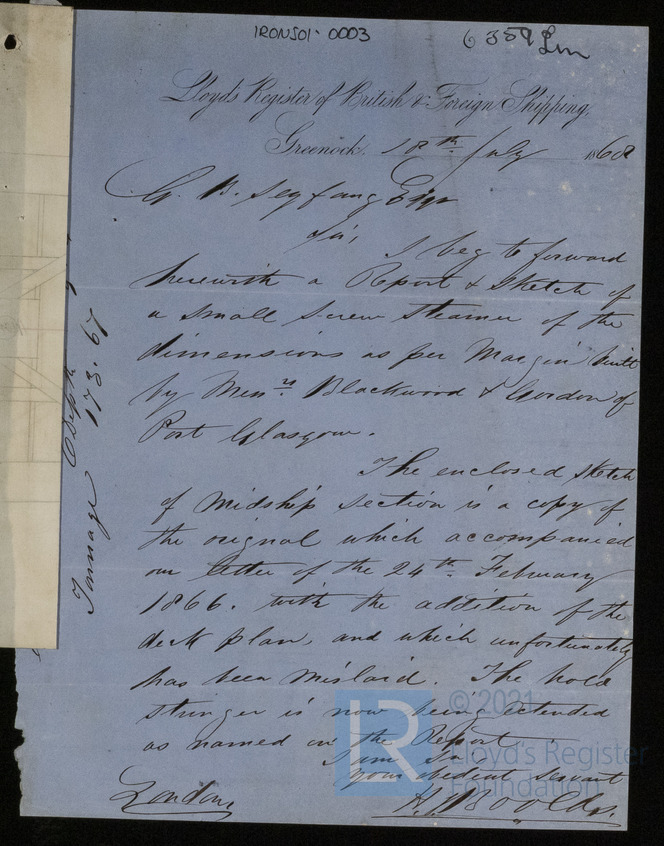 IRONS01-0003
6359 Lm
Lloyds Register of British & Foreign Shipping.
Greenock. 18th July 1868
G. B. Seyfang Esqr
Sir,
I beg to forward
herewith a Report & Sketch of
a small Screw Steamer of the
dimensions as per Margin built
by Messrs. Blackwood & Gordon of
Port Glasgow.
The enclosed sketch
of midship section is a copy of
the orignal which accompanied
our letter of the 24th. February
1866. with the addition of the
deck plan, and which unfortunately
has been mislaid. The hold
stringer is now being extended
as named in the Report.
I am Sir
Your obedient servant
London,
Depth
Tonnage 173.67
© 2021
Lloyd's Register
Foundation
LR